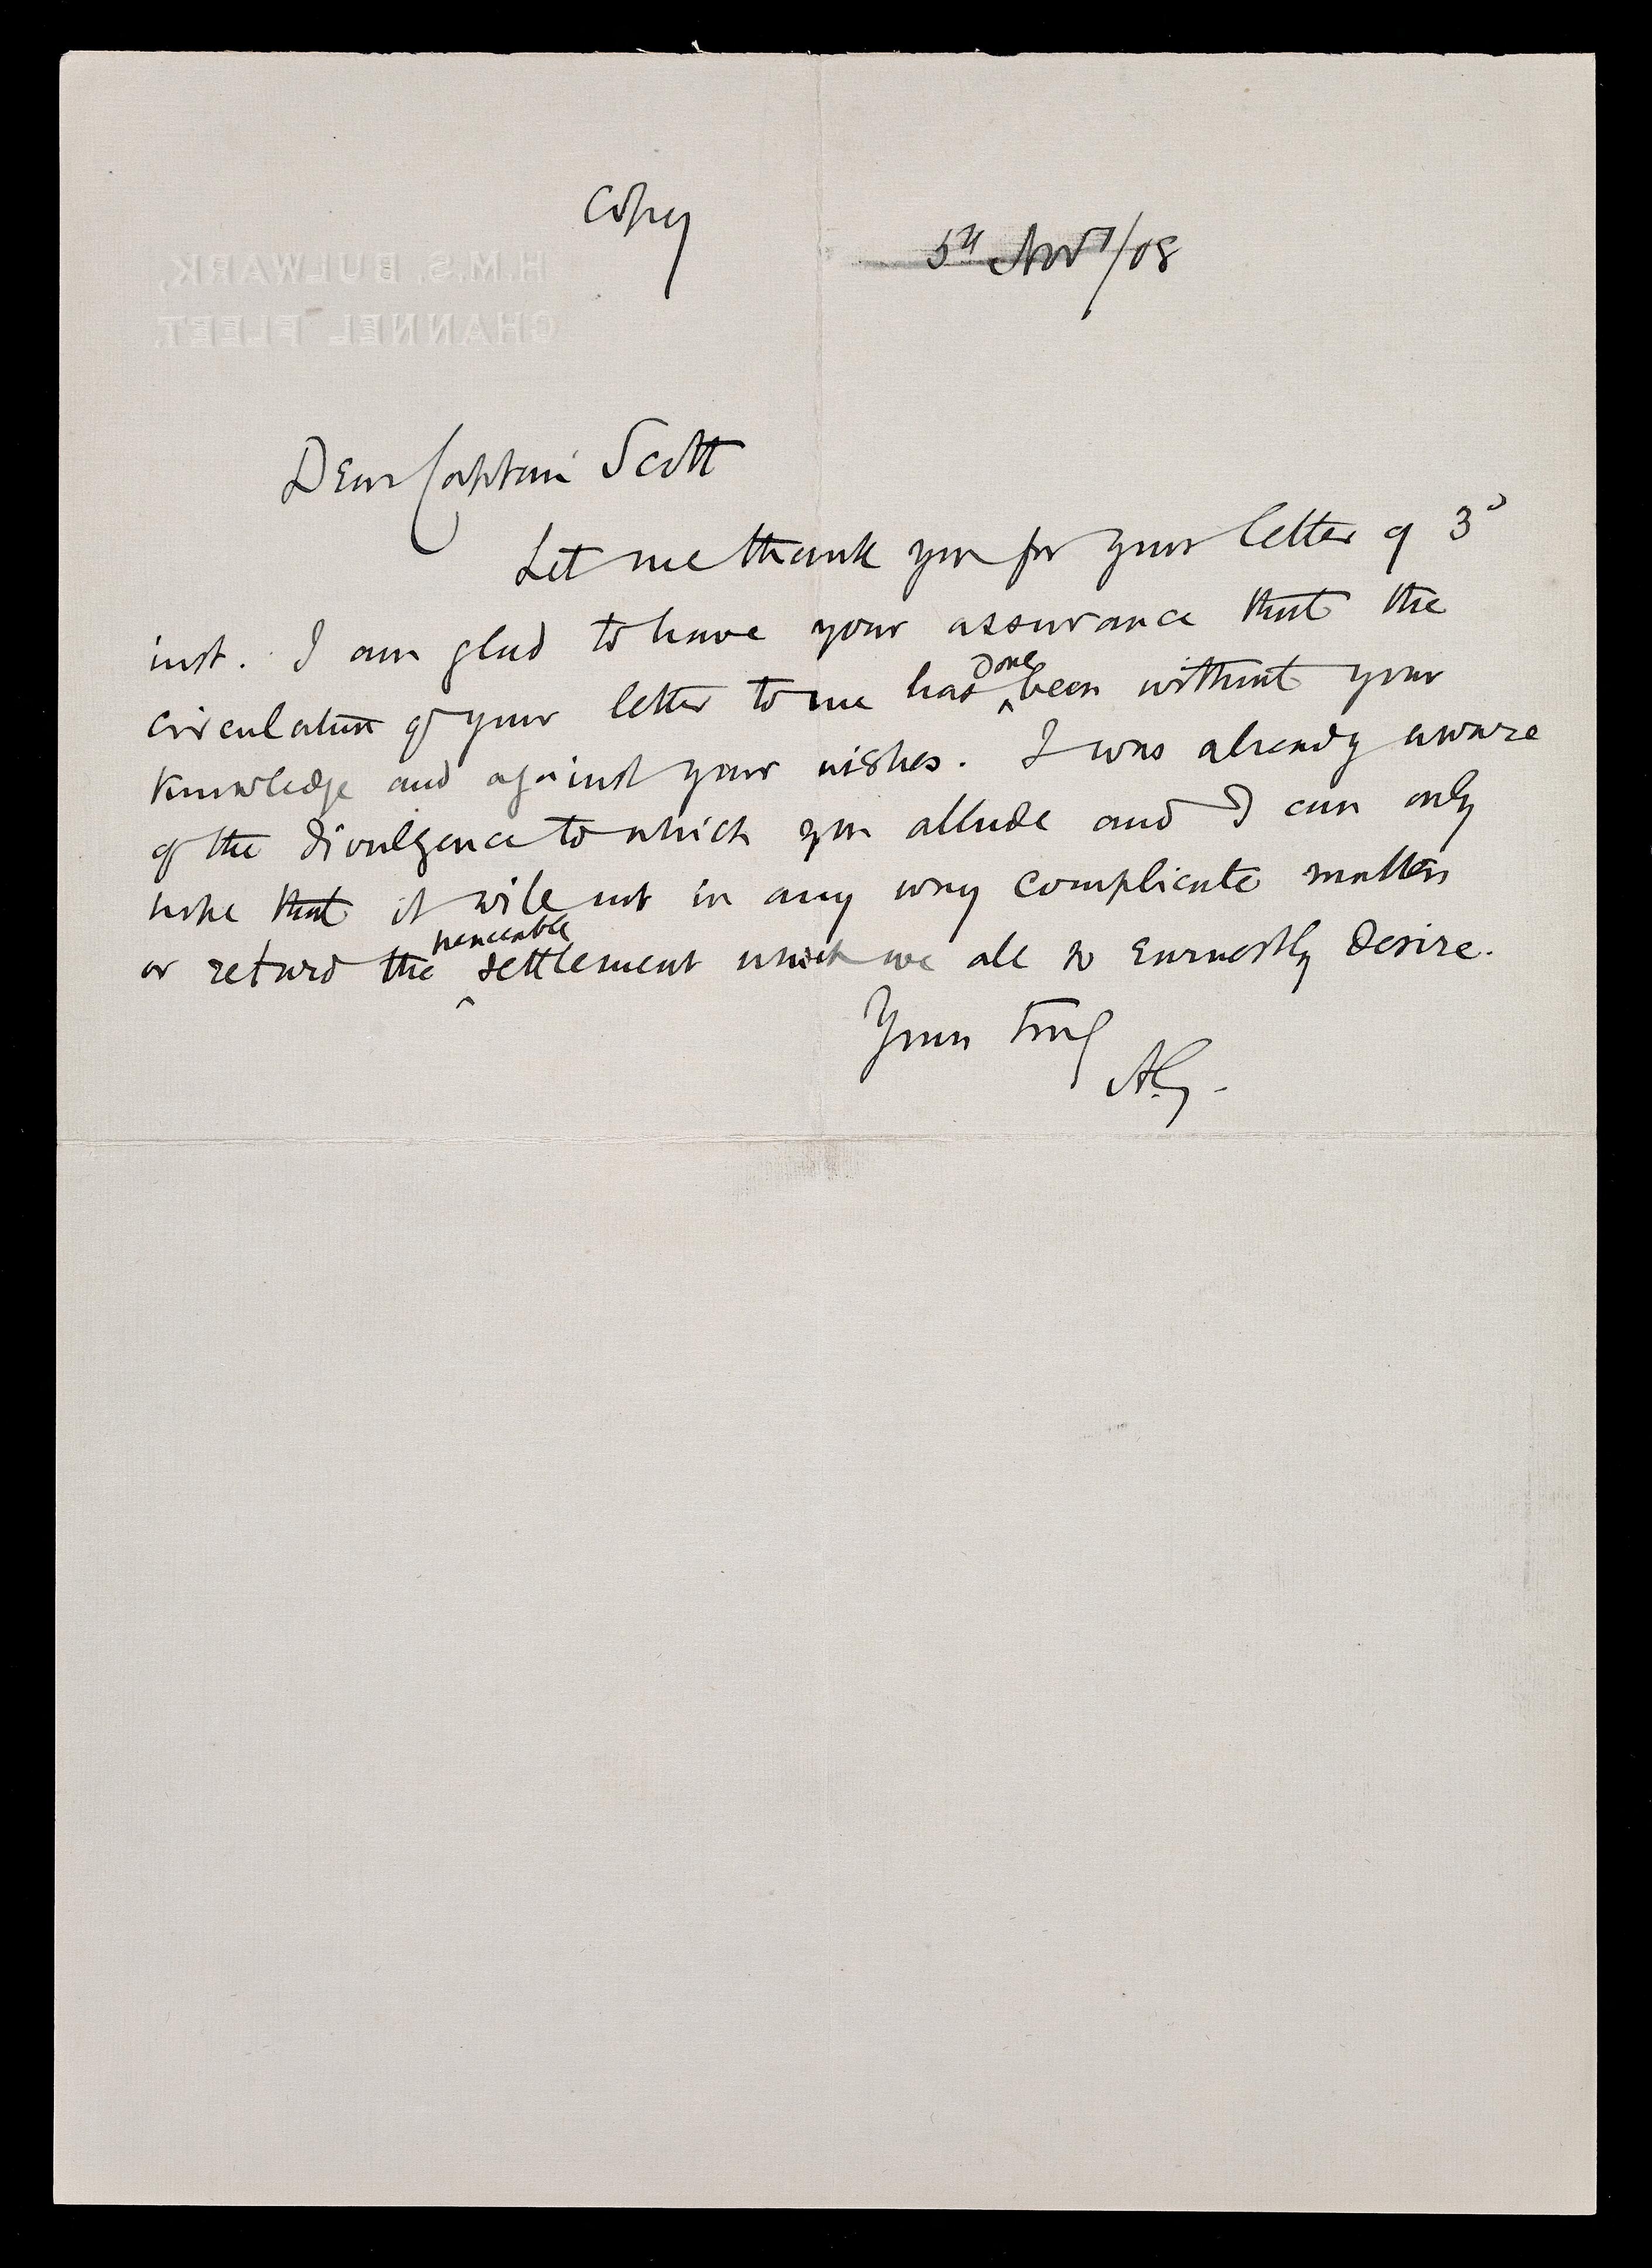 Copy
5th Novr/08
H.M.S. BULWARK,
CHANNEL FLEET.
Dear Captain Scott
Let me thank you for your letter of 3d
inst. I am glad to have your assurance that the
circulation of your letter to me has ^done been without your
knowledge and against your wishes. I was already aware
of the divulgence to which you allude and I can only
hope that it will not in any way complicate matters
or retard the ^peaceable settlement which we all so Earnestly desire.
Yours truly